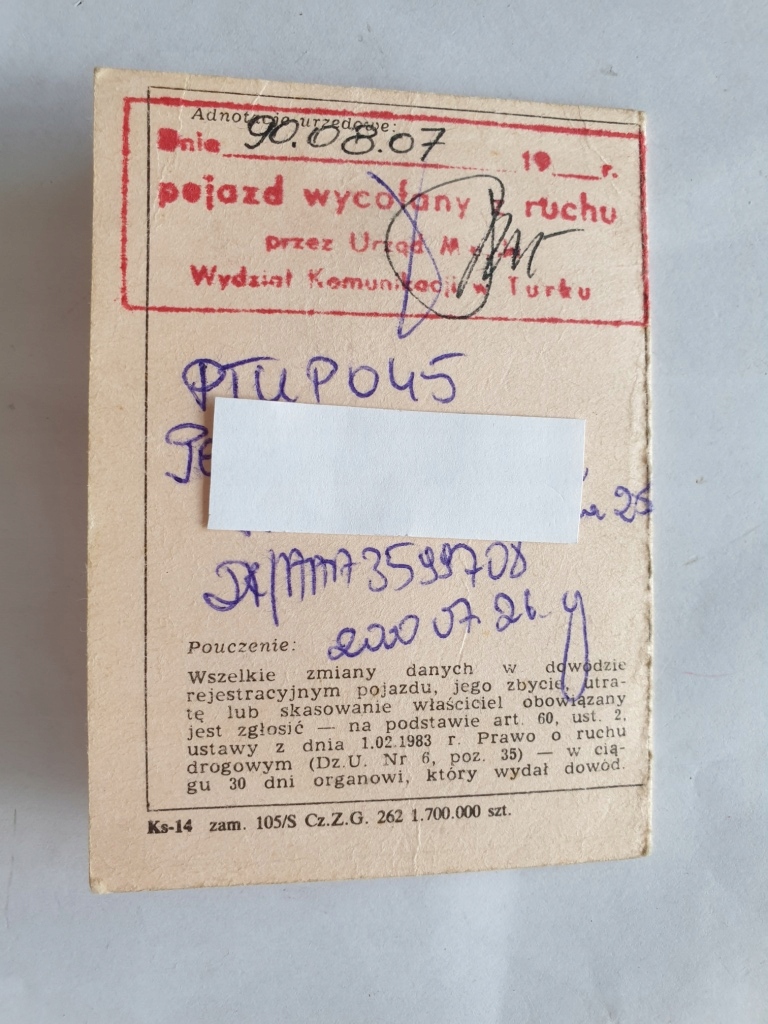 Adnotacje urzędowe:
Dnia 90.08.07 19 r.
pojazd wycofany z ruchu
przez Urząd
Wydział Komunikacji w Turku
PTUP045
26
3599708
2000 07 26
Pouczenie:
Wszelkie zmiany danych w dowodzie
rejestracyjnym pojazdu, jego zbycie, utra-
tę lub skasowanie właściciel obowiązany
jest zgłosić — na podstawie art. 60, ust. 2,
ustawy z dnia 1.02.1983 r. Prawo o ruchu
drogowym (Dz.U. Nr 6, poz. 35) — w cią-
gu 30 dni organowi, który wydał dowód.
Ks-14 zam. 105/S Cz.Z.G. 262 1.700.000 szt.